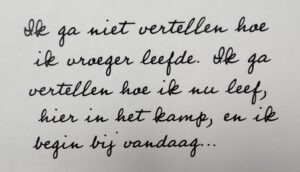 Ik ga niet vertellen hoe
ik vroeger leefde. Ik ga
vertellen hoe ik nu leef,
hier in het kamp, en ik
begin bij vandaag...